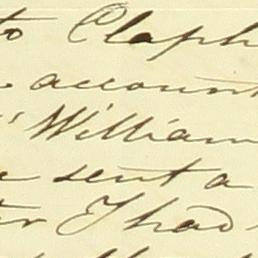 to Claph
account
"William
sent a
I had